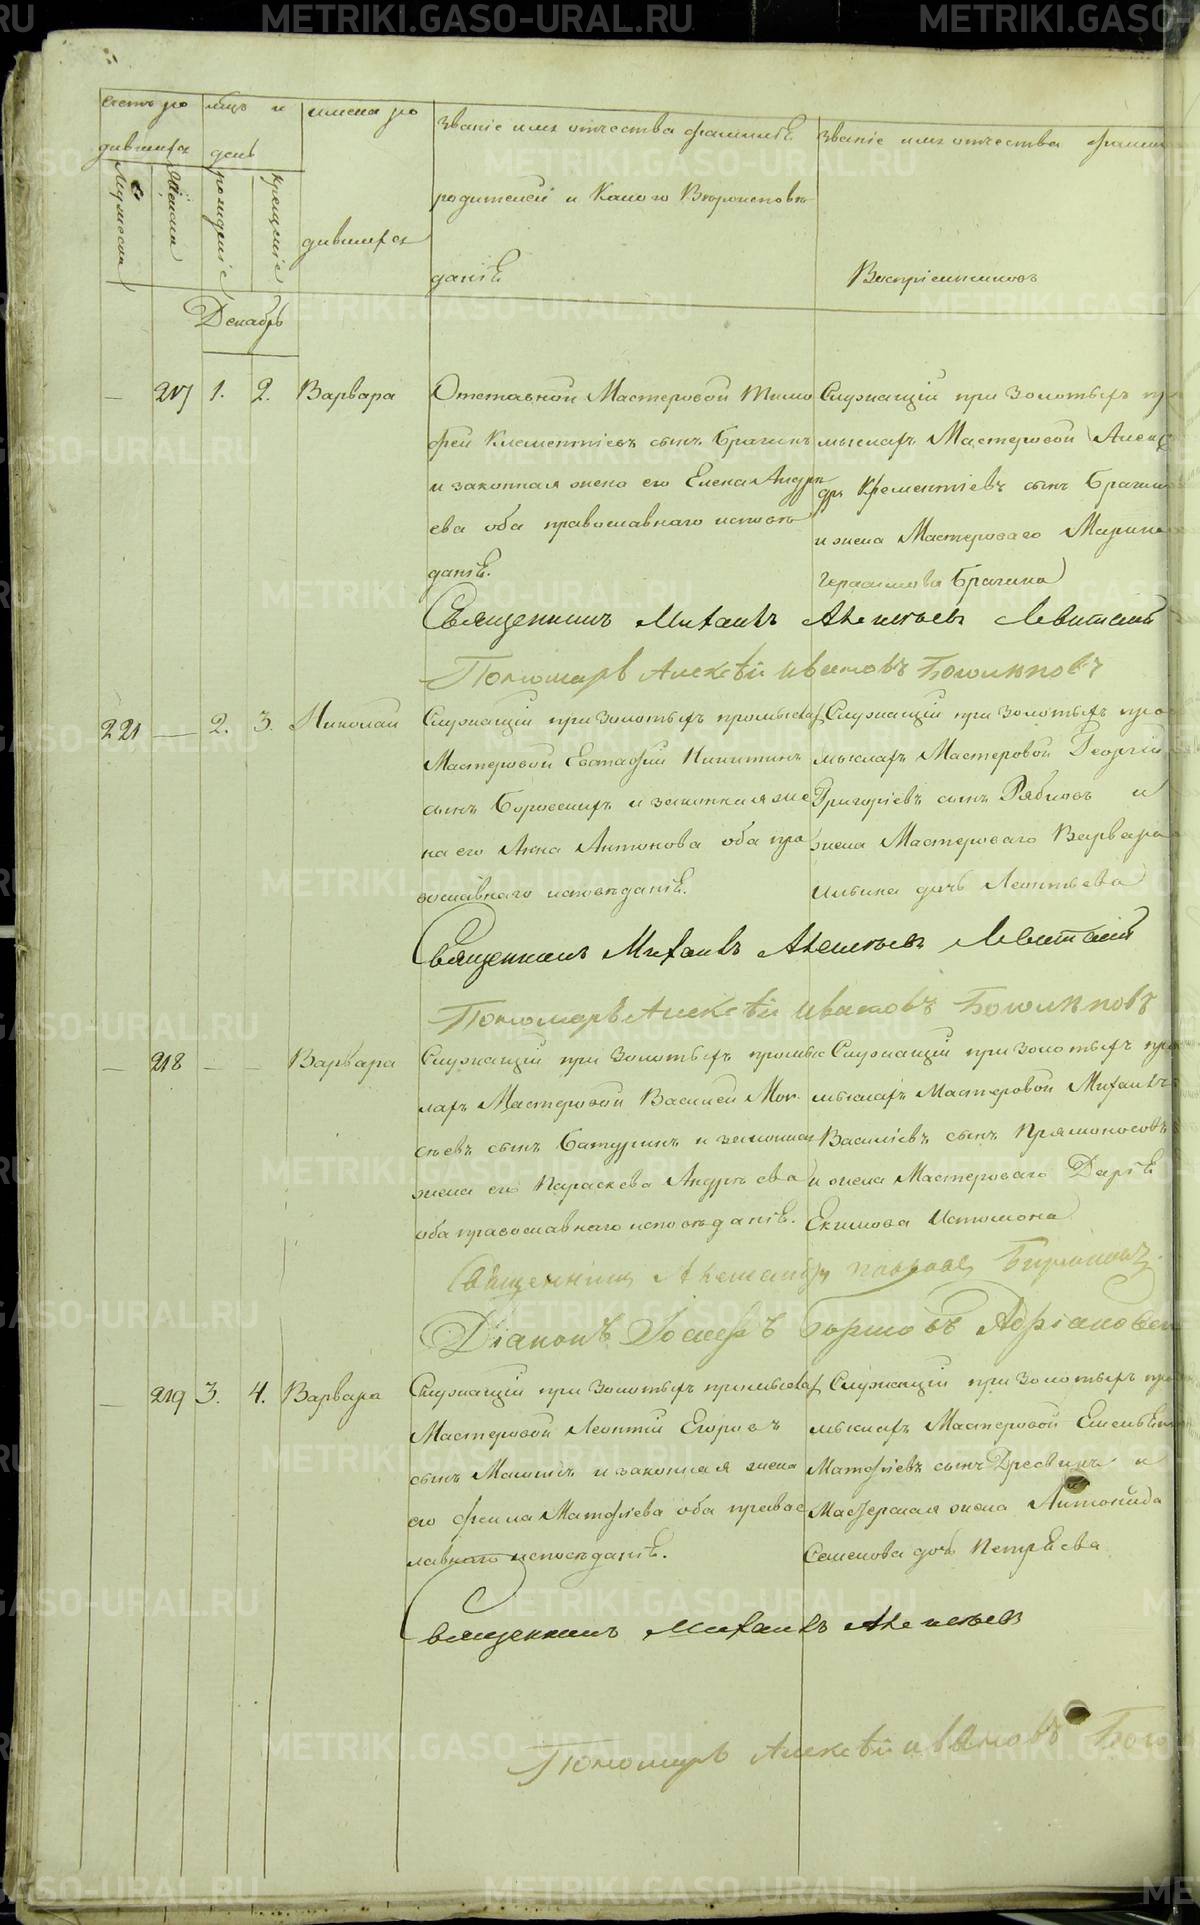 METRIKI.GASO-URAL.RU
счетъ ро
дившихся
Мужеска
Женска
мцъ и
день
рождение
крещение
имена ро
дившихся
Званiе имя отчества фамилiѣ
родителей и Какого Вѣроисповѣ
данiѣ
Званiе имя отчества фамил
Воспрiемниковъ
Декабрь
— 217 1. 2. Варвара
Отставной Мастеровой Тимо
фей Клементiевъ сынъ Брагинъ
и законная жено его Елена Андре
ева оба православнаго исповѣ
данiѣ.
Служащiй при Золотыхъ пр
мыслахъ Мастеровой Алекса
дръ Клементiевъ сынъ Брагин
и жена Мастероваго Марина
Герасимова Брагина
Священникъ Михаилъ Алексѣевъ Левитскiй
Пономарь Алексѣй Ивановъ
221 — 2. 3. Николай
Служащiй при Золотыхъ промыслах
Мастеровой Евстафiй Никитинъ
сынъ и законная же
на его Анна Антонова оба пра
вославнаго исповѣданiѣ.
Служащiй при Золотыхъ про
мыслахъ Мастеровой Георгiй
Григорiевъ сынъ Рябковъ и
жена Мастероваго Варвара
Ильина дочь Леонтьева
Священникъ Михаилъ Алексѣевъ Левитскiй
Пономарь Алексѣй Ивановъ
— 218 — Варвара
Служащiй при Золотыхъ промыс
лахъ Мастеровой Василей Мои
сѣевъ сынъ Батуринъ и законная
жена его Параскева Андрѣева
оба православнаго исповѣданiѣ.
Служащiй при Золотыхъ про
мыслахъ Мастеровой Михаилъ
Василiевъ сынъ Прямоносовъ
и жена Мастероваго Дарiѣ
Екимова Истомона
Священникъ Александръ
Дiаконъ Iосифъ
— 219 3. 4. Варвара
Служащiй при Золотыхъ промыслах
Мастеровой Леонтiй Егоровъ
сынъ и законная жена
его Матфiева оба правос
лавнаго исповѣданiѣ.
Служащiй при Золотыхъ про
мыслахъ Мастеровой Емельян
Матфiевъ сынъ Дресвинъ и
Мастерская жена Антонида
Семенова дочь Петрѣева
Священникъ Михаилъ Алексѣевъ
Пономарь Алексѣй Ивановъ